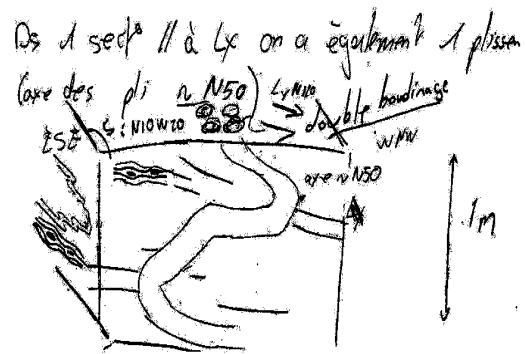 Ds 1 sect° // à Lx on a également 1 plissem
(axe des pli ~ N50) Lx N110
double boudinage
ESE S : N10W20 WNW
axe ~ N50
1m